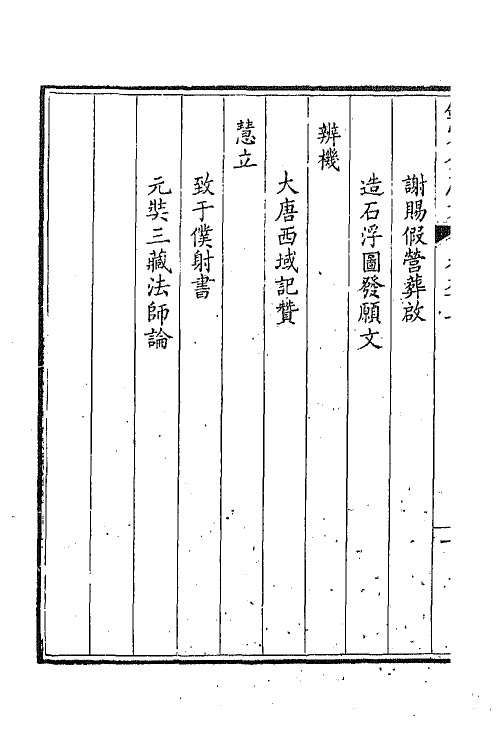 謝賜假營葬啟
造石浮圖發願文
辨機
大唐西域記贊
慧立
致于僕射書
元奘三藏法師論